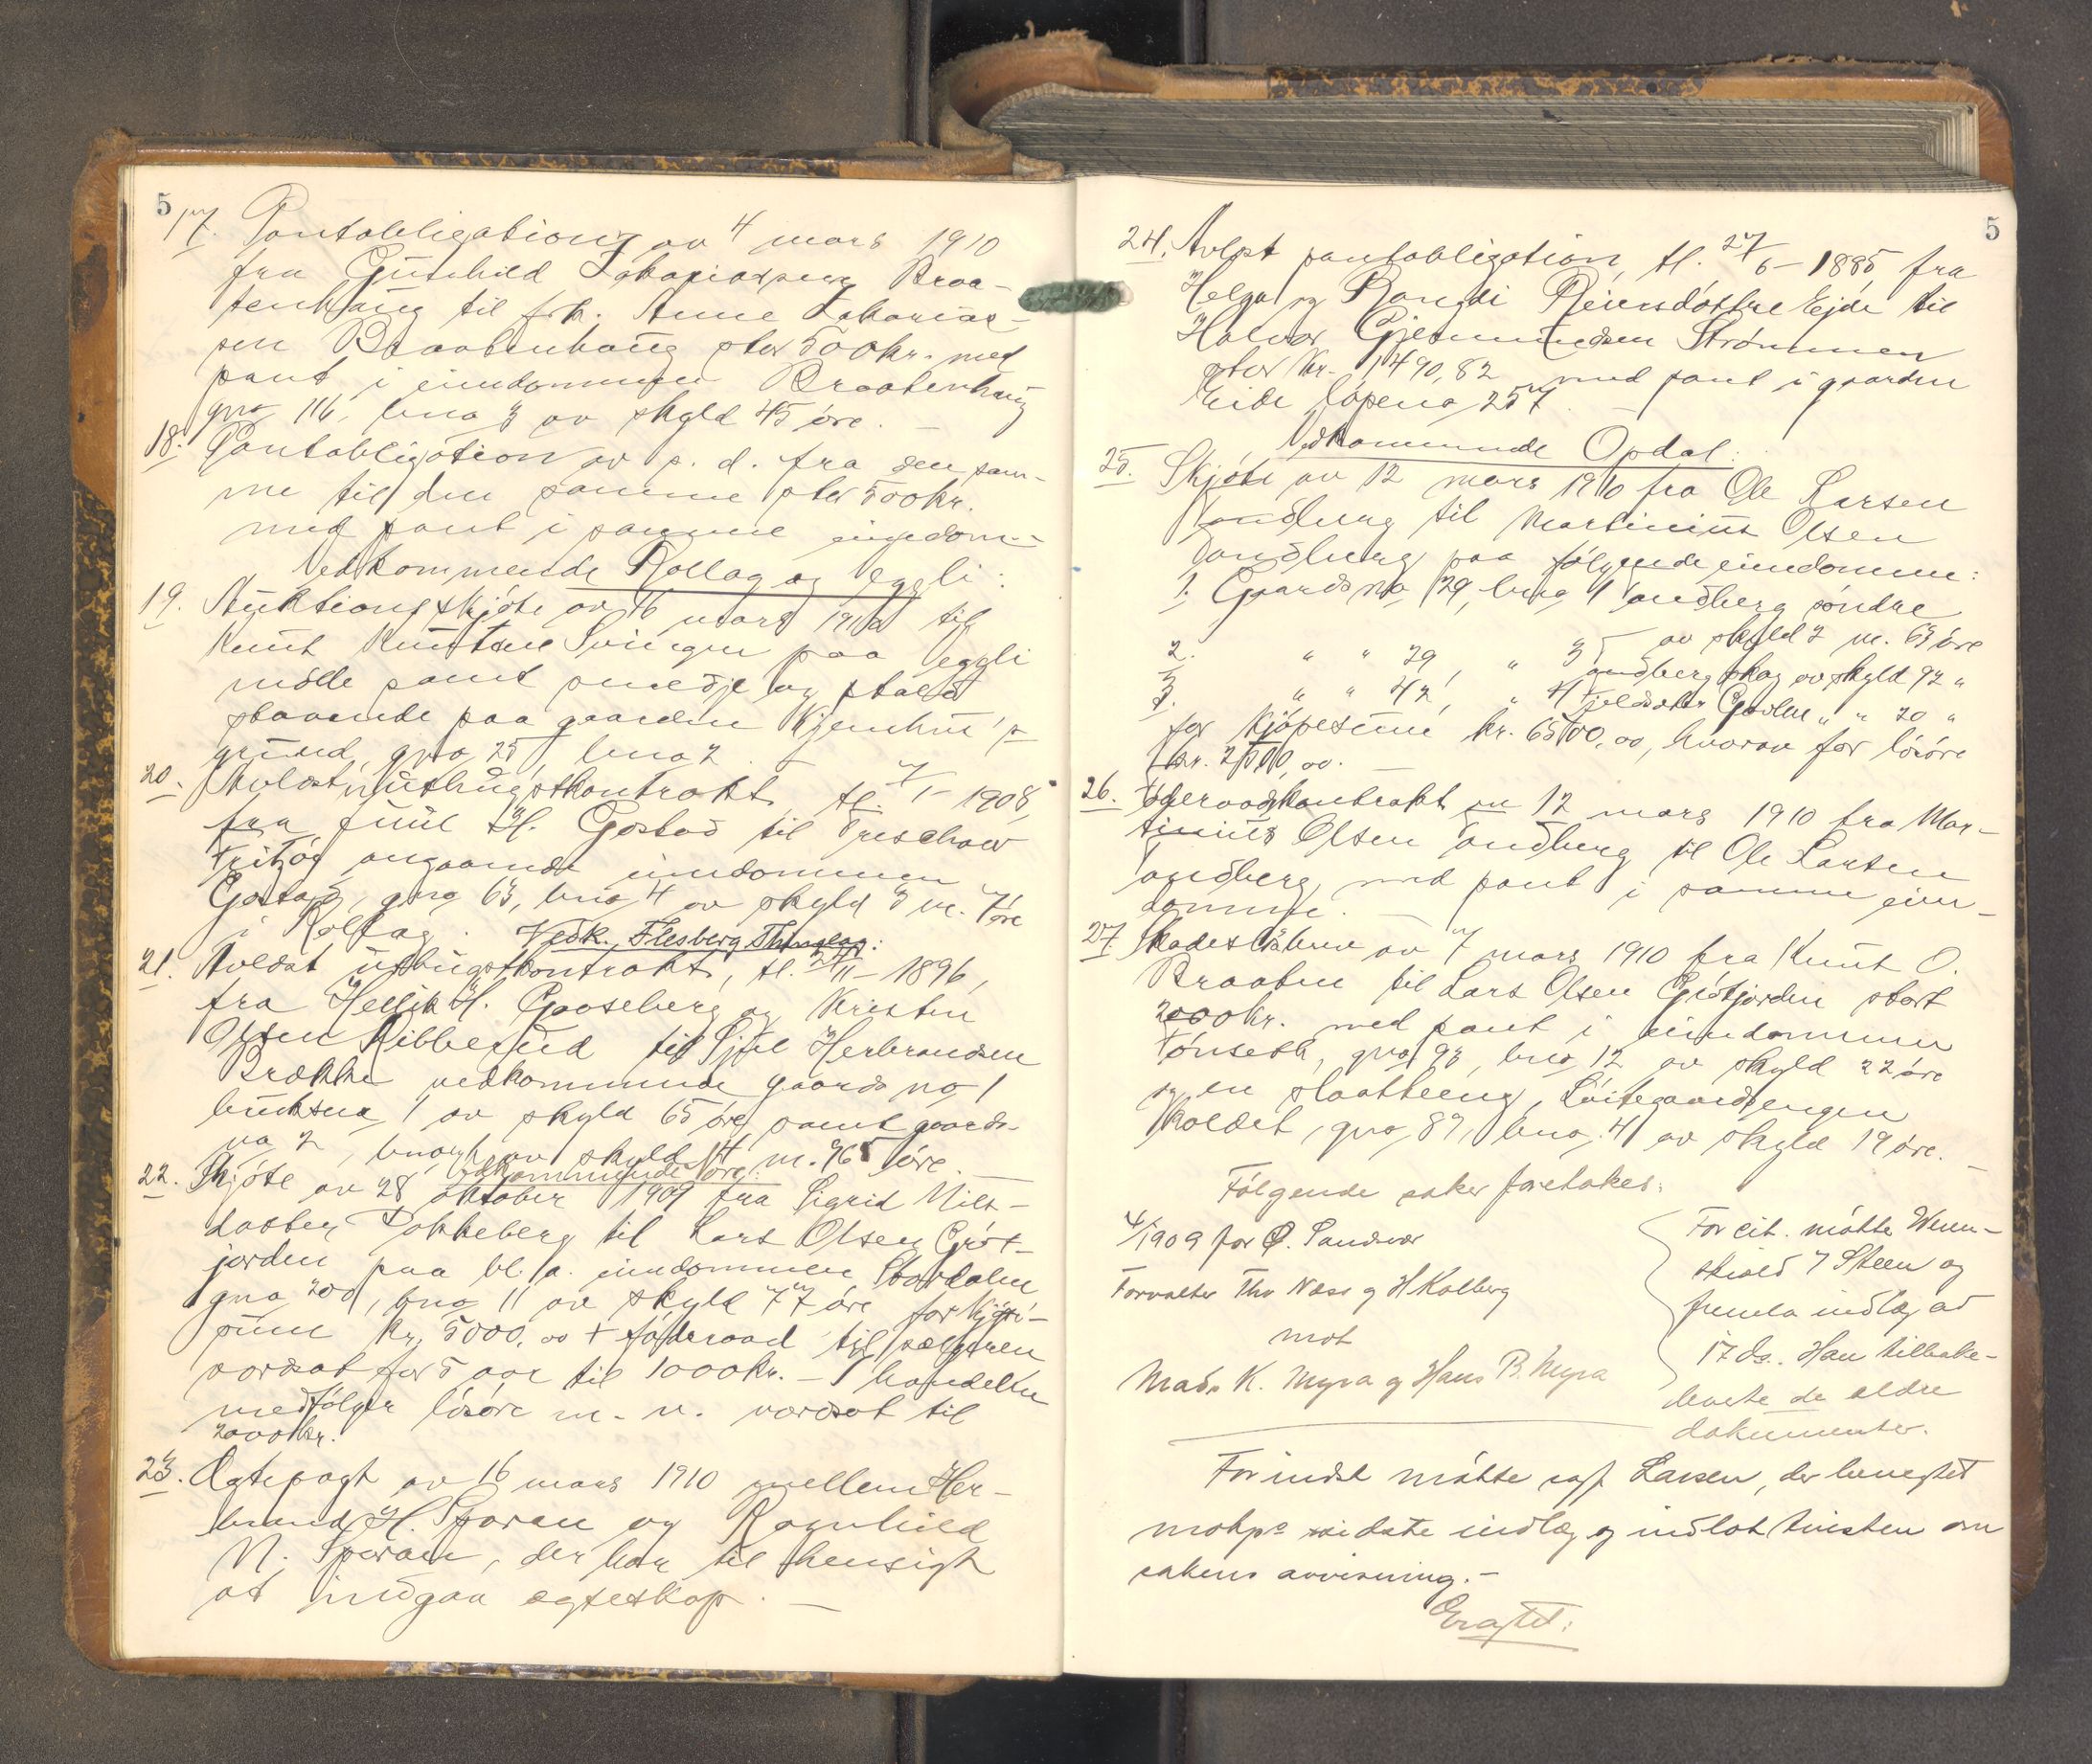 5
17. Pantobligation av 4 mars 1910
fra Gunhild Zakariasen Braa-
tenhaug til frk. Anne Zakarias-
sen Braatenhaug stor 500 kr. med
pant i eiendommen Braatenhaug
gno 116, bno 3 av skyld 45 øre. —
18. Pantobligation av s. d. fra den sam-
me til den samme stor 500 kr.
med pant i samme eiendom. —
Vedkommende Rollag og Veggli:
19. Auktionsskjøte av 16 mars 1910 til
Knut Knutsen Svingen paa Veggli
mølle samt smedje og stald
staaende paa gaarden Kjemhus
grund, gno 25, bno 2. —
20. Avlæst uthugstkontrakt, tl. 7/1 – 1908,
fra Juul H. Gostad til Treschow
Fritzøe angaaende eiendommen
Gostad, gno 63, bno 4 av skyld 3 m. 7 øre
i Rollag. Vedk. Flesberg Thinglag:
21. Avlæst uthugstkontrakt, tl. 24/11 – 1896,
fra Hellik H. Gaaseberg og Kristen
Olsen Ribberud til Sjul Herbrandsen
Brække vedkommende gaards no 1
bruksno 1 av skyld 65 øre samt gaards-
no 2, bno 1 av skyld 14 m. 96 øre.
Vedkommende Øre:
22. Skjøte av 28 oktober 1909 fra Sigrid Nils-
datter Dokkeberg til Lars Olsen Grøt-
jorden paa bl. a. eiendommen Stordalen
gno 200, bno 11 av skyld 77 øre for kjøpe-
sum kr. 5000,00 + føderaad til sælgeren
værdsat for 5 aar til 1000 kr. — I handelen
medfølger løsøre m. v. værdsat til
2000 kr.
23. Ægtepagt av 16 mars 1910 mellem Her-
brand H. Sporan og Ragnhild
N. Sporan, der har til hensigt
at indgaa ægteskap. —
5
24. Avlæst pantobligation, tl. 27/6 – 1885 fra
Helga og Rangdi Reiersdøttre Ejde til
Halvor Gjermundsen Strømmen
stor kr. 1490,82 med pant i gaarden
Eide løpeno 257. —
Vedkommende Opdal:
25. Skjøte av 12 mars 1910 fra Ole Larsen
Tandberg til Martinius Olsen
Tandberg paa følgende eiendomme:
1. Gaardsno 29, bno 1 Tandberg søndre
av skyld 2 m. 63 øre
2. " " 29, " 35 Tandberg skog av skyld 92 "
3. " " 42, " 4 Fjeldsæter Gvalen " " 20 "
for kjøpesum kr. 6500,00, hvorav for løsøre
kr. 2500,00. —
26. Føderaadskontrakt av 12 mars 1910 fra Mar-
tinius Olsen Tandberg til Ole Larsen
Tandberg, med pant i samme eien-
domme. —
27. Skadesløsbrev av 7 mars 1910 fra Knut O.
Braaten til Lars Olsen Grøtjorden stort
2000 kr. med pant i eiendommen
Tønseth, gno 93, bno 12 av skyld 22 øre
og en slaatteeng, Løitegaardsengen
kaldet, gno 89, bno 4 av skyld 19 øre. —
Følgende saker foretokes:
4/1909 for O. Sandsvær
Forvalter Thv Næss og H Kolberg
mot
Mads K. Myra og Hans B. Myra
For cit. møtte Wenn-
skiold Steen og
fremla indlæg ad
17 ds. Han tilbake-
leverte de ældre
dokumenter.
For indst møtte sagf. Larsen, der benegtet
motps sidste indlæg og indlot tvisten om
sakens avvisning. —
Eragtet: